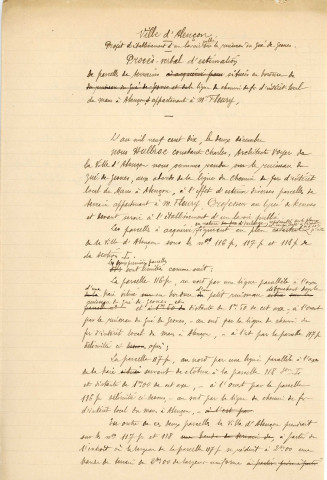 Ville d'Alençon
Projet d'établissement d'un lavoir sur le ruisseau du Gué de Gesnes.
Procès-verbal d'estimation
de parcelles de terrains situées en bordure
du ruisseau du Gué de Gesnes et de la ligne de chemin de fer d'intérêt local
du Mans à Alençon appartenant à Mr Fleury.
L'an mil neuf cent dix, le deux décembre
nous Hultroc Constant Charles, Architecte Voyer de
la Ville d'Alençon nous sommes rendu sur le ruisseau du
Gué de Gesnes, aux abords de la ligne du chemin de fer d'intérêt
local du Mans à Alençon, à l'effet d'estimer diverses parcelles de
terrain appartenant à M. Fleury Professeur au lycée de Rennes
et devant servir à l'établissement d'un lavoir public
Les parcelles à acquérir figurent au plan cadastral
de la Ville d'Alençon sous les nos 116 p, 117 p et 118 p de
la section I.
Les parcelles sont limitées comme suit:
La parcelle 116 p, au nord par une ligne parallèle à l'axe
d'une haie en bordure du petit ruisseau
et distante de 1m50 de cet axe, - à l'ouest
par le ruisseau du Gué de Gesnes, - au sud par la ligne du chemin de
fer d'intérêt local du Mans à Alençon, - à l'est par la parcelle 117 p
délimitée ci après;
La parcelle 117 p, au nord par une ligne parallèle à l'axe
de la haie servant de clôture à la parcelle 118 Son I
et distante de 1m00 de cet axe, - à l'ouest par la parcelle
116 p délimitée ci dessus, - au sud par la ligne de chemin de fer
d'intérêt local du Mans à Alençon,
En outre de ces deux parcelles la Ville d'Alençon prendrait
sur les nos 117 p et 118 à partir de
l'endroit où la largeur de la parcelle 117 p se réduit à 2m00 une
bande de terrain de 2m00 de largeur uniforme